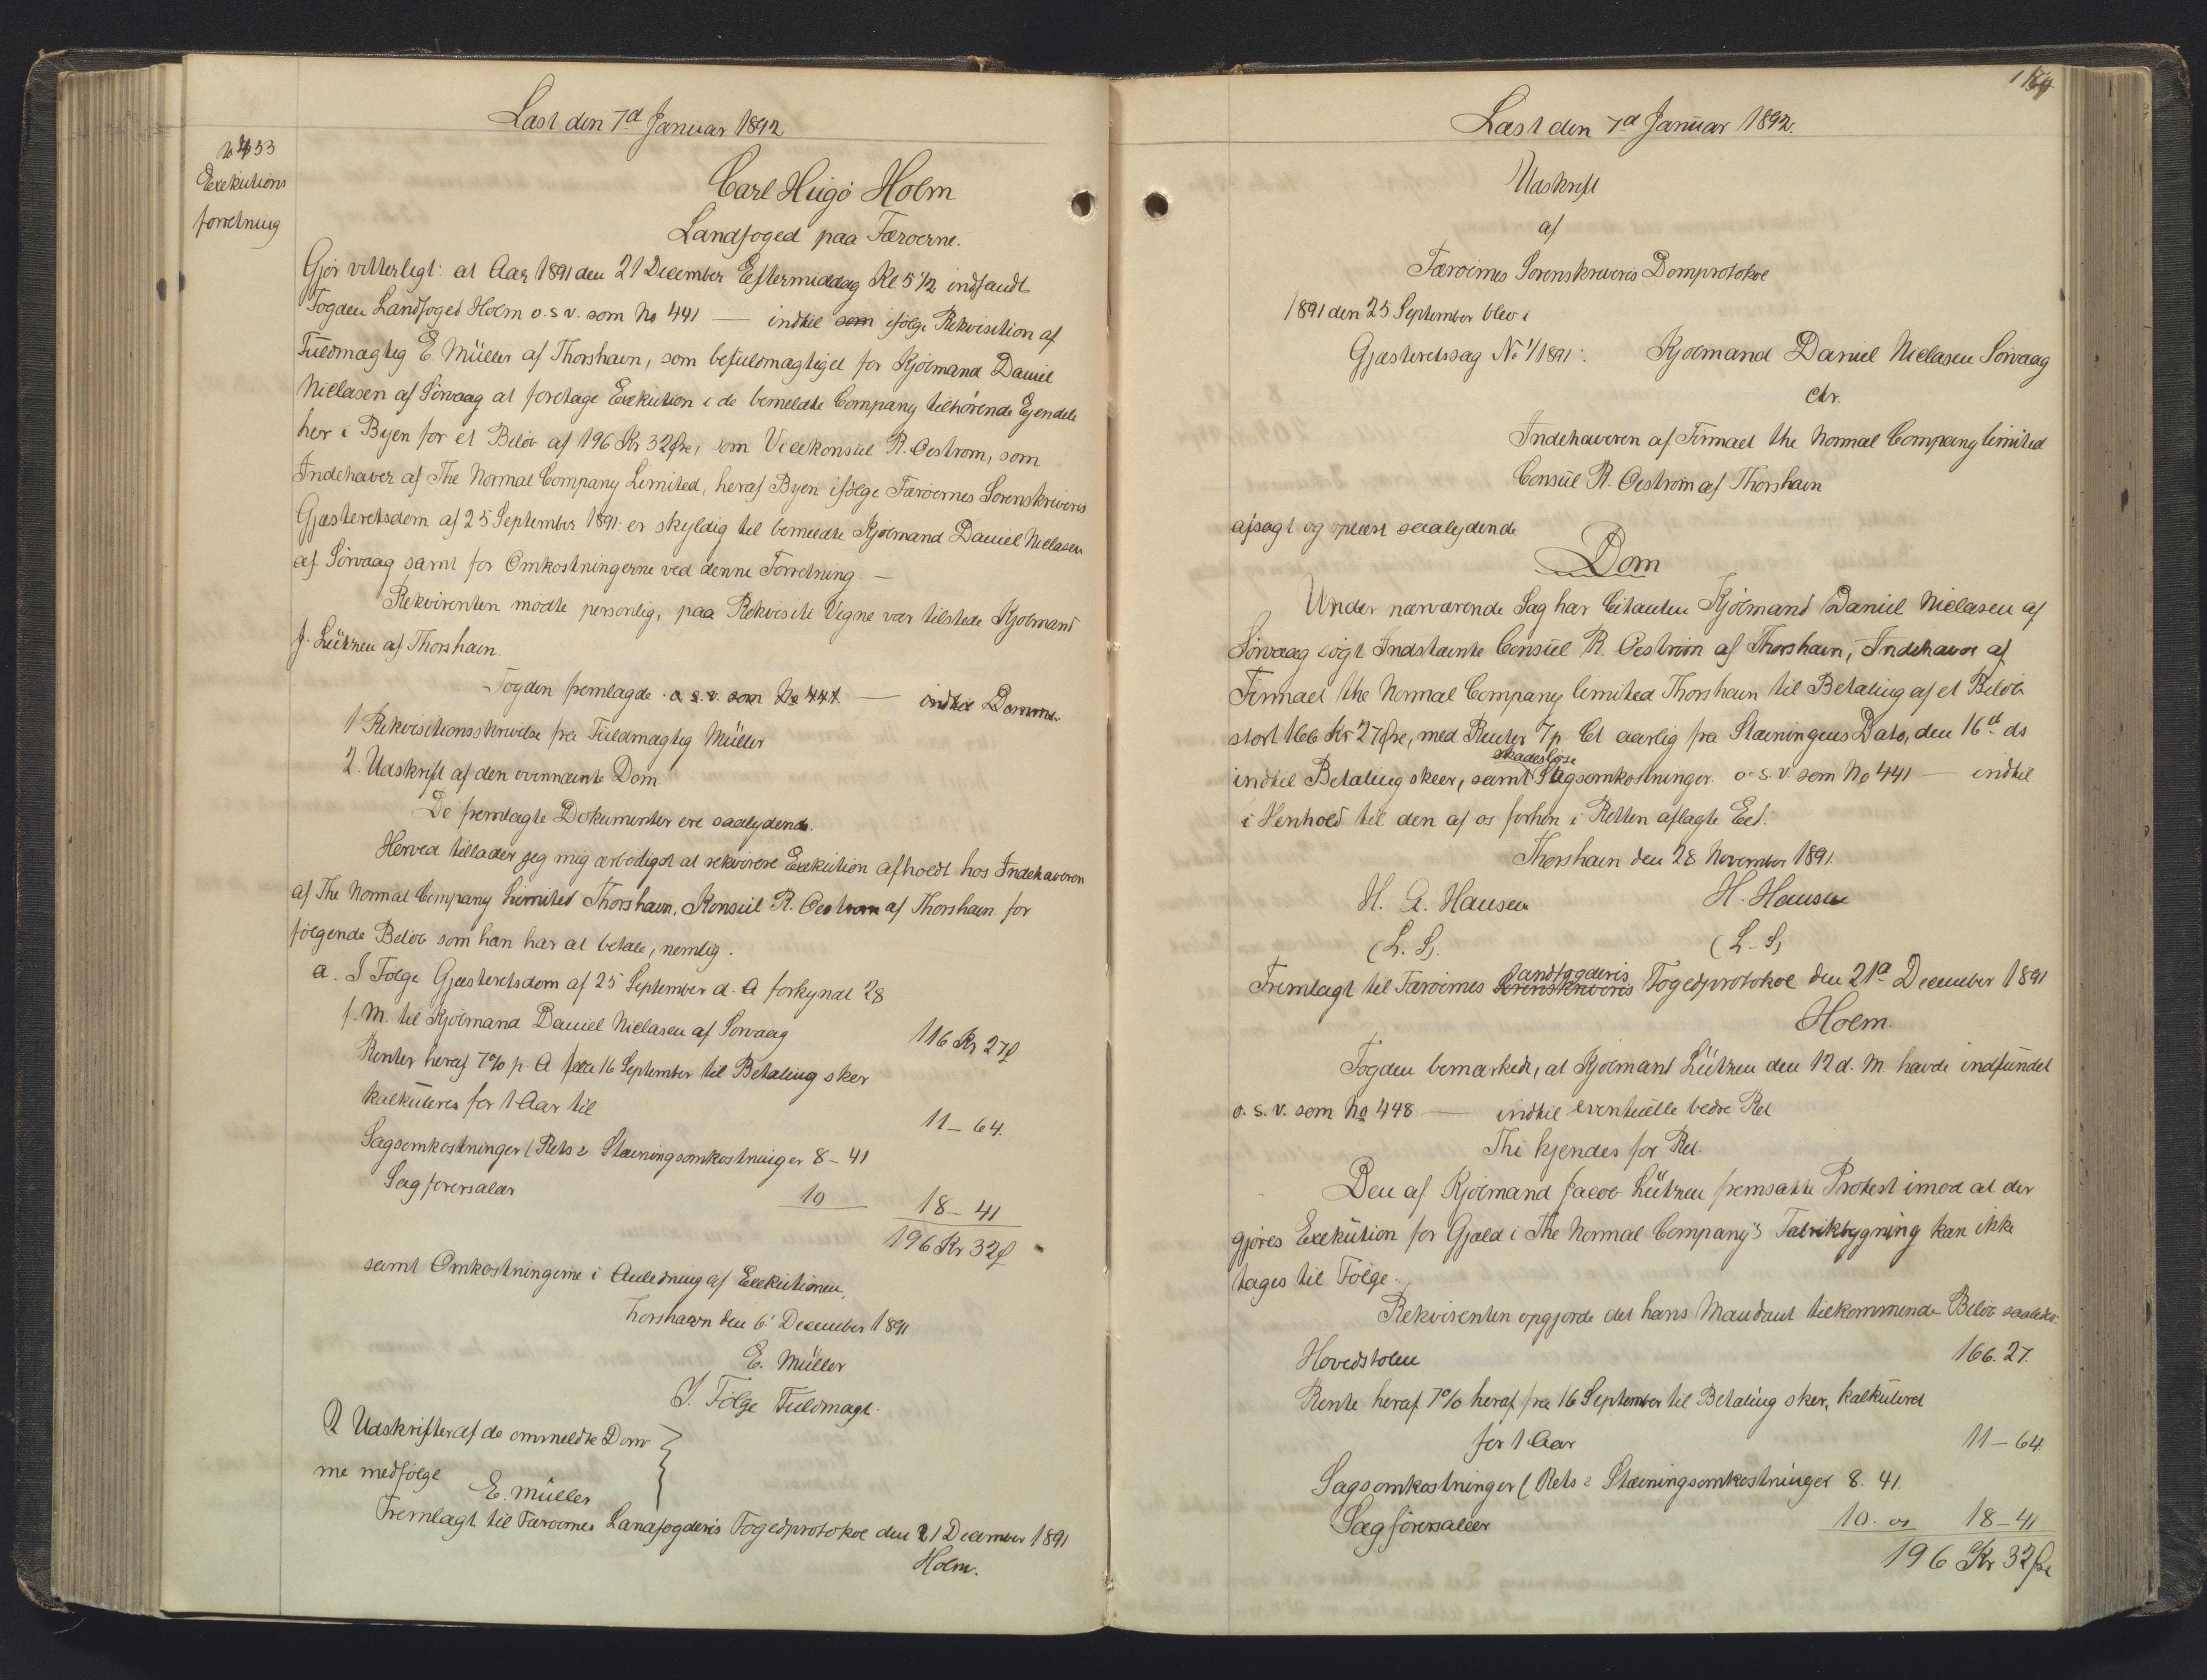 Læst den 7d Januar 1892
No 453
Exekutions
forretning
Carl Hugo Holm
Landfoged paa Færoerne.
Gjør vitterligt: at Aar 1891 den 21 December Eftermiddag Kl 5 1/2 indfandt
Fogden Landfoged Holm o.s.v. som No 441 — indtil som ifølge Rekvisition af
Fuldmægtig E. Müller af Thorshavn, som befuldmægtiget for Kjøbmand Daniel
Niclasen af Sörvaag at foretage Exekution i de bemeldte Company tilhørende Ejendele
her i Byen for et Beløb af 196 Kr 32 Øre, som Vicekonsul R. Oestrom, som
Indehaver af The Normal Company Limited, heraf Byen ifølge Færoernes Sorenskriveris
Gjæsteretsdom af 25 September 1891. er skyldig til bemeldte Kjøbmand Daniel Niclasen
af Sörvaag samt for Omkostningerne ved denne Forretning. —
Rekvirenten mødte personlig, paa Rekvisiti Vegne var tilstede Kjøbmand
J. Lützen af Thorshavn.
Fogden fremlagde o.s.v. som No 441. — indtil Domme.
1 Rekvisitionsskrivelse fra Fuldmægtig Müller
2. Udskrift af den ovennævnte Dom
De fremlagte Dokumenter ere saalydende.
Herved tillader jeg mig ærbödigst at rekvirere Exekution afholdt hos Indehaveren
af The Normal Company Limited Thorshavn, Konsul R. Oestrom af Thorshavn for
følgende Beløb som han har at betale, nemlig.
a. I Følge Gjæsteretsdom af 25 September d. A forkyndt 28
f. M. til Kjøbmand Daniel Niclasen af Sörvaag 116 Kr 27 Ø
Renter heraf 7% p. A fra 16 September til Betaling sker
kalkuleres for 1 Aar til 11 - 64.
Sagsomkostninger (Rets & Stævningsomkostninger 8 - 41
Sagførersalær 10 18 - 41
196 Kr 32 Ø
samt Omkostningerne i Anledning af Exekutionen,
Thorshavn den 6' December 1891
E. Müller
I. Følge Fuldmagt.
2 Udskrifter af de ommeldte Dom
me medfølge
E. Müller
Fremlagt til Færoernes Landfogderis Fogedprotokol den 21 December 1891
Holm.
Læst den 7d Januar 1892.
Udskrift
af
Færöernes Sorenskriveris Domprotokol
1891 den 25 September blev i
Gjæsteretssag No 1/1891: Kjøbmand Daniel Niclasen Sörvaag
ctr.
Indehaveren af Firmaet the Normal Company limited
Consul R. Oestrom af Thorshavn
afsagt og oplæst saalydende
Dom
Under nærværende Sag har Citanten Kjøbmand Daniel Niclasen af
Sörvaag søgt Indstævnte Consul R. Oestrom af Thorshavn, Indehaver af
Firmaet the Normal Company limited Thorshavn til Betaling af et Beløb
stort 166 Kr 27 Øre, med Renter 7 p. Ct aarlig fra Stævningens Dato, den 16d ds
skadesløse
indtil Betaling skeer, samt Sagsomkostninger. o.s.v. som No 441 — indtil
i Henhold til den af os forhen i Retten aflagte Eed.
Thorshavn den 28 November 1891.
H. A. Hansen H. Hansen
(L. S). (L. S)
Landfogderis
Fremlagt til Færöernes Sorenskriveris Fogedprotokol den 21d December 1891
Holm.
Fogden bemærked, at Kjøbmand Lützen den 12 d. M. havde indfundet
o.s.v. som No 448 — indtil eventuelle bedre Ret
Thi kjendes for Ret.
Den af Kjøbmand Jacob Lützen fremsatte Protest imod at der
gjøres Exekution for Gjæld i The Normal Company's Fabrikbygning kan ikke
tages til Følge.
Rekvirenten opgjorde det hans Mandant tilkommende Beløb saaledes:
Hovedstolen 166. 27.
Rente heraf 7% heraf fra 16 September til Betaling sker, kalkuleret
for 1 Aar 11 - 64.
Sagsomkostninger (Rets & Stævningsomkostninger 8. 41.
Sagførersalær 10. 18 - 41
196 Kr 32 Øre